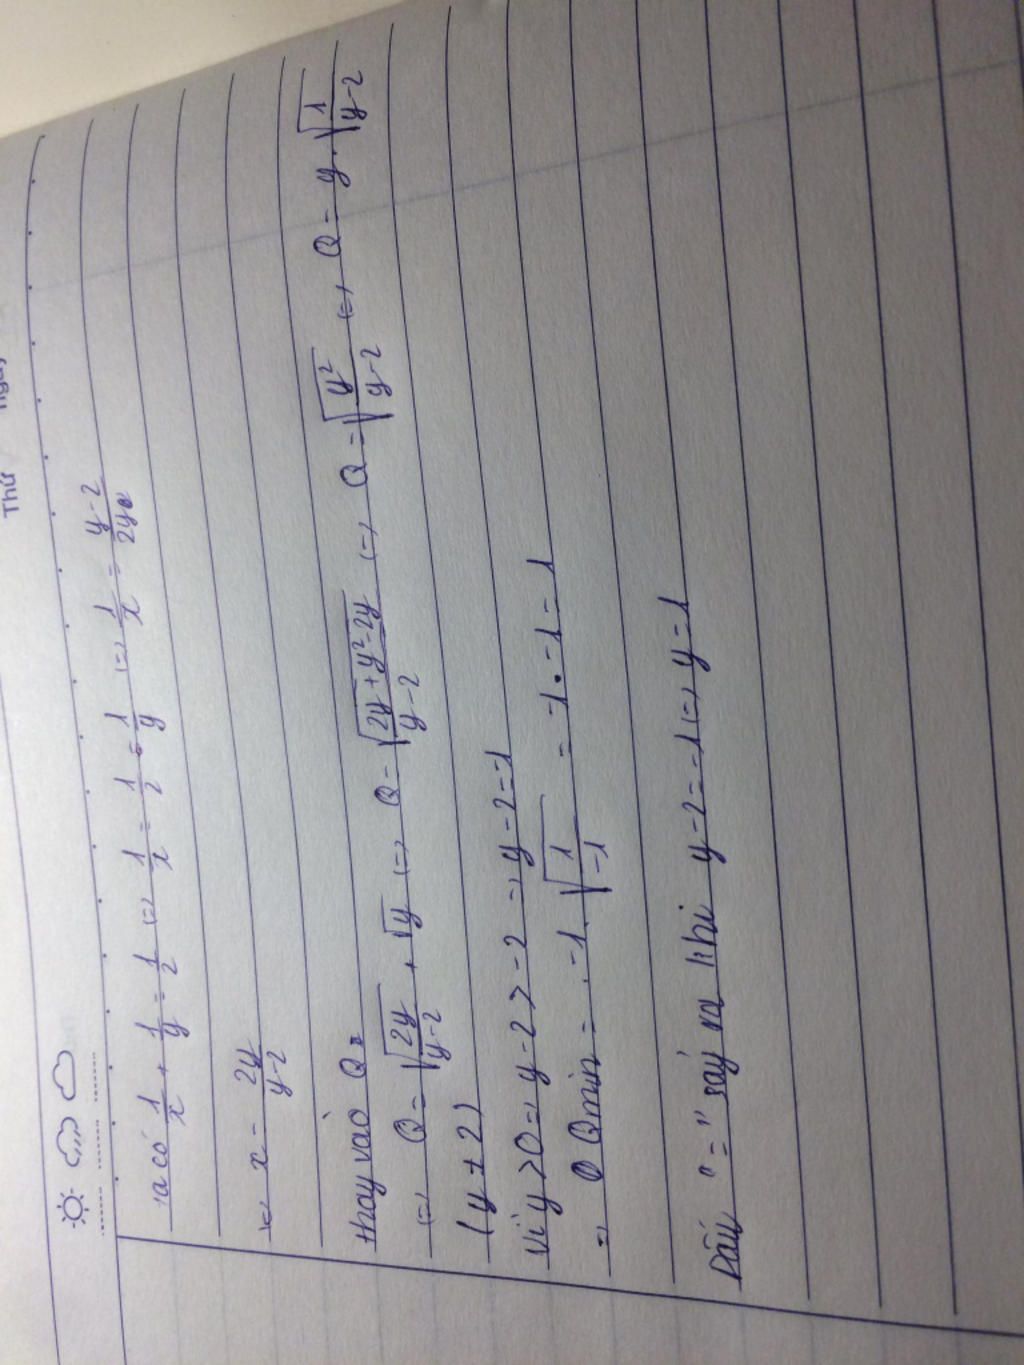 Thứ
Ta có 1/x + 1/y = 1/2 (=) 1/x = 1/2 - 1/y (=) 1/x = y-2/2y
(=) x = 2y/y-2
thay vào Q
(=) Q = √(2y/y-2) + √y (=) Q = √(2y+y²-2y/y-2) (=) Q = √(y²/y-2) (=) Q = y.√(1/y-2)
(y ≠ 2)
Vì y>0 => y-2>-2 => y-2=-1
=> Qmin = -1.√(1/-1) = -1.-1 = 1
Dấu "=" sảy ra khi y-2=-1 (=) y=1